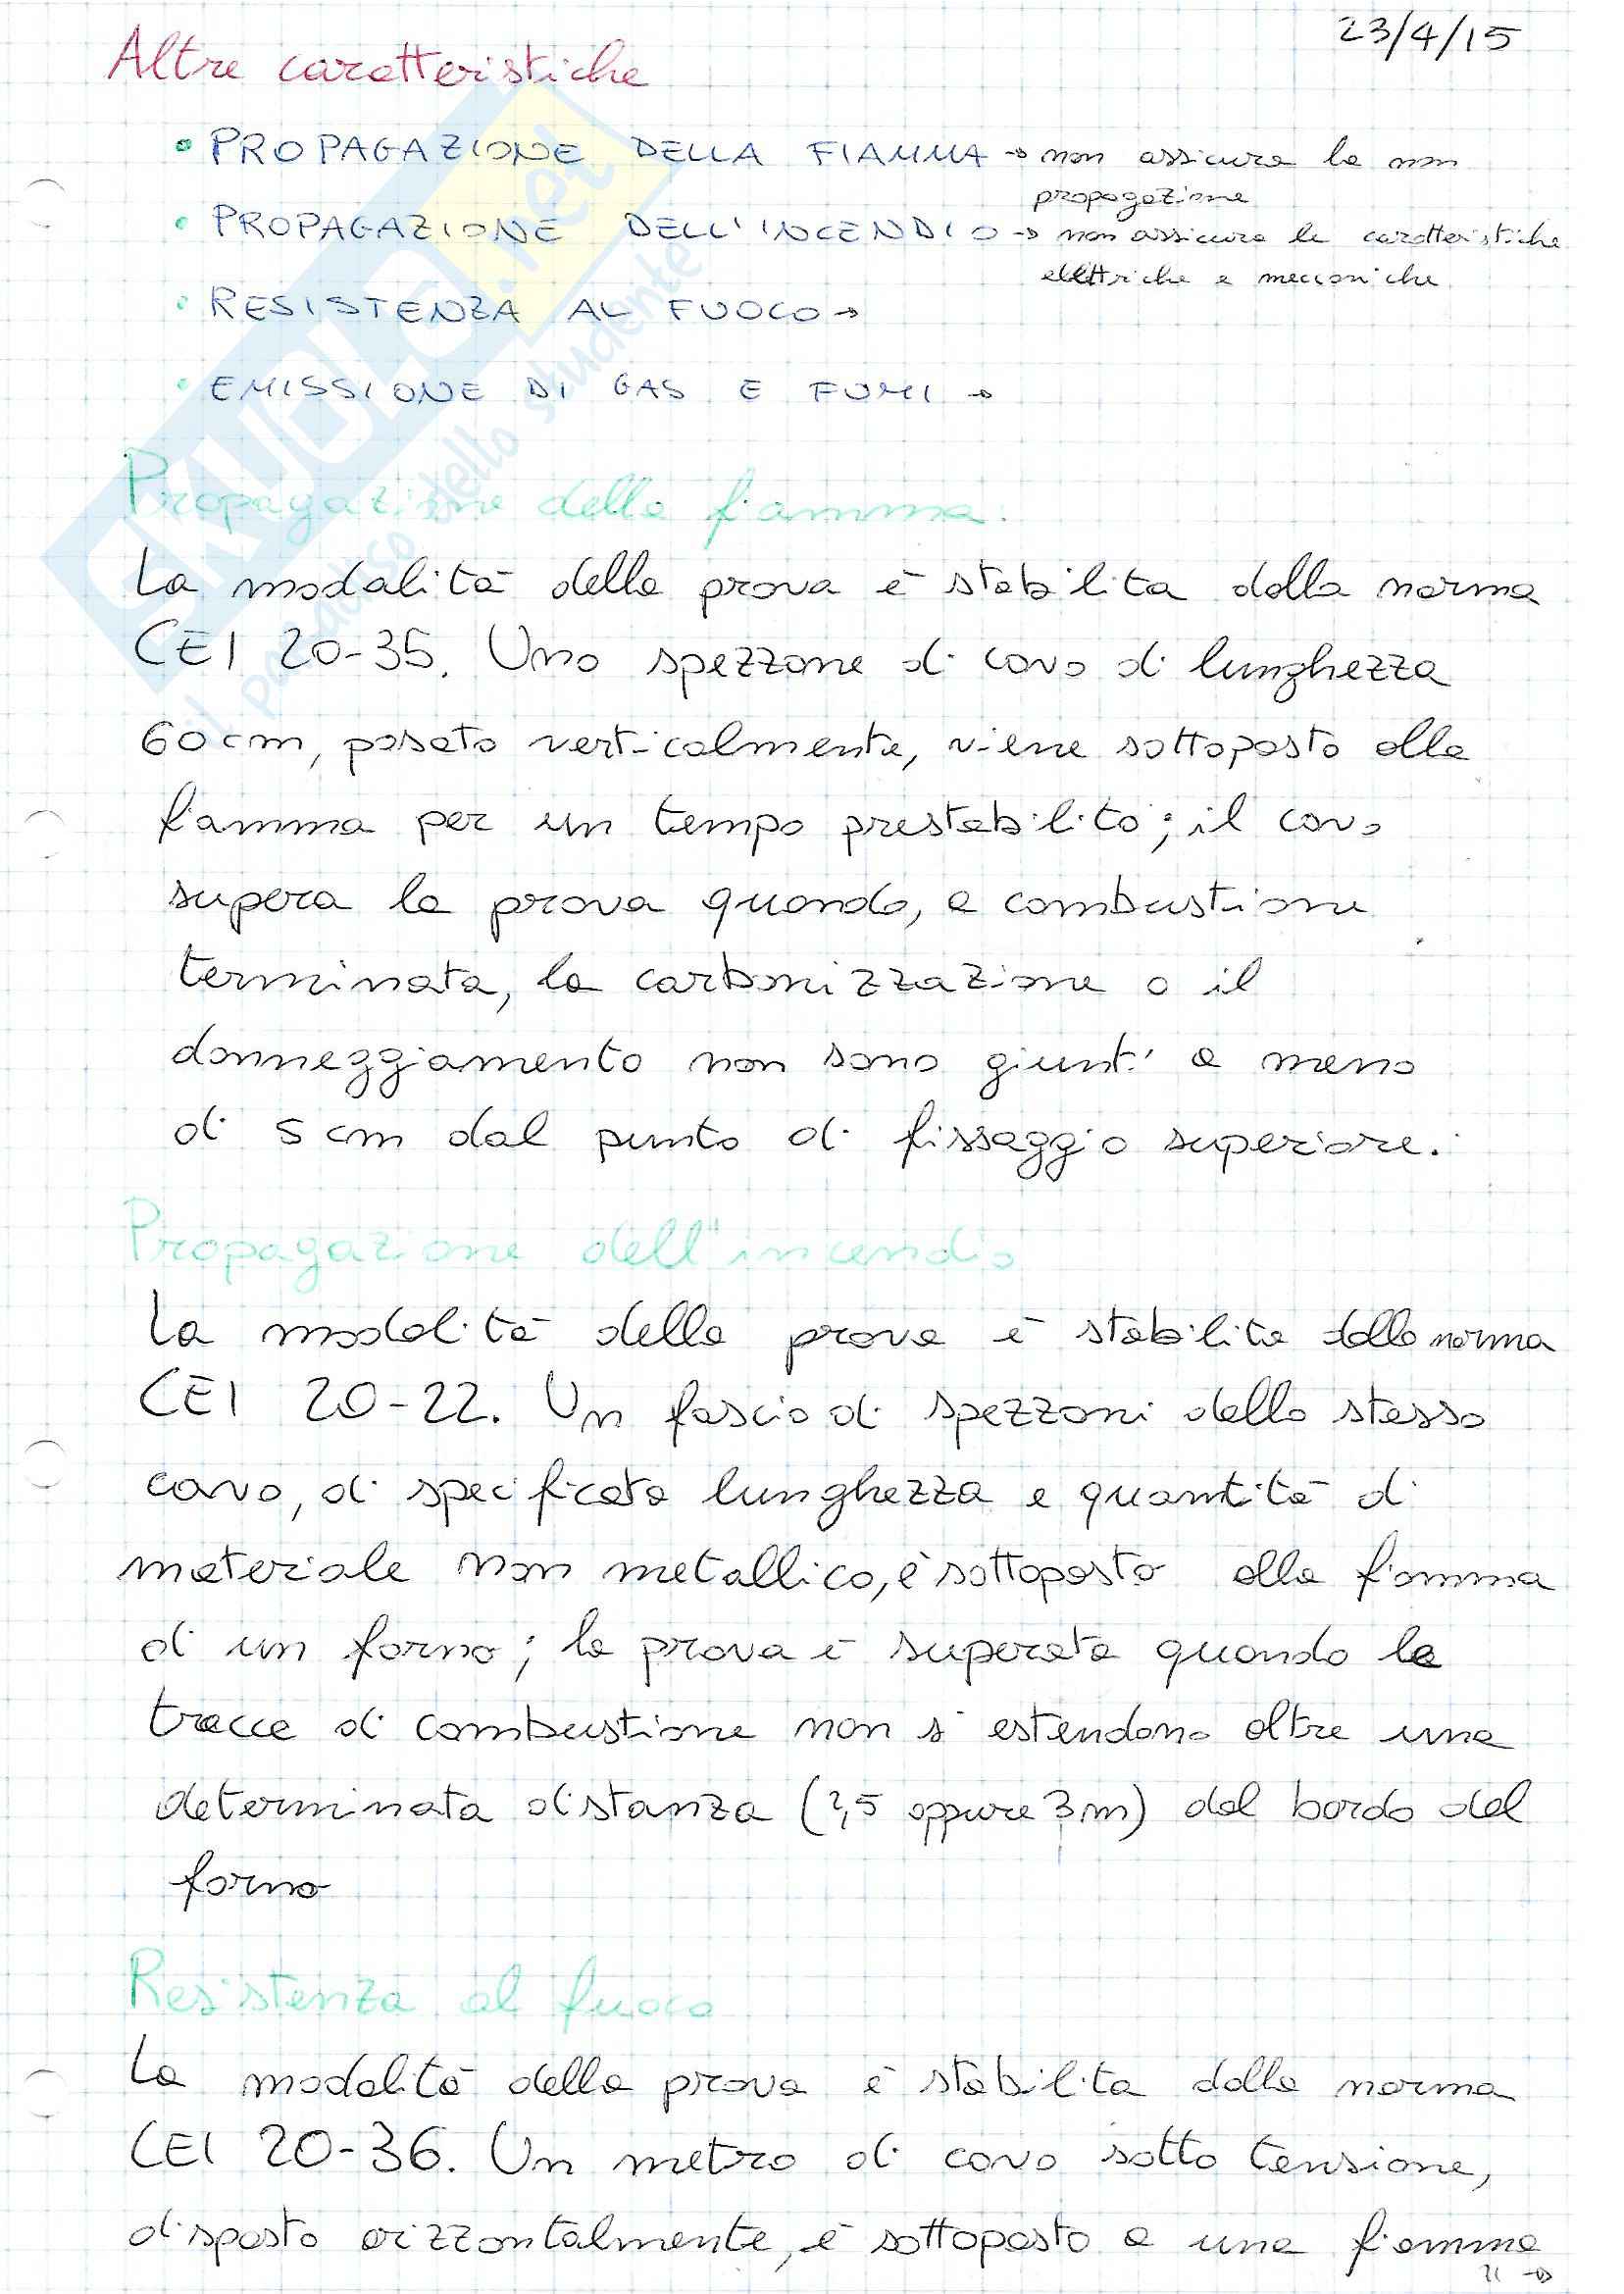 23/4/15
Altre caratteristiche
• PROPAGAZIONE DELLA FIAMMA → non assicura la non
propagazione
• PROPAGAZIONE DELL'INCENDIO → non assicura le caratteristiche
elettriche e meccaniche
• RESISTENZA AL FUOCO →
• EMISSIONE DI GAS E FUMI →
Propagazione della fiamma.
La modalità della prova è stabilita dalla norma
CEI 20-35. Uno spezzone di cavo di lunghezza
60 cm, posato verticalmente, viene sottoposto alla
fiamma per un tempo prestabilito; il cavo
supera la prova quando, a combustione
terminata, la carbonizzazione o il
danneggiamento non sono giunti a meno
di 5 cm dal punto di fissaggio superiore.
Propagazione dell'incendio
La modalità della prova è stabilita dalla norma
CEI 20-22. Un fascio di spezzoni dello stesso
cavo, di specificata lunghezza e quantità di
materiale non metallico, è sottoposto alla fiamma
di un forno; la prova è superata quando le
tracce di combustione non si estendono oltre una
determinata distanza (2,5 oppure 3 m) dal bordo del
forno
Resistenza al fuoco
La modalità della prova è stabilita dalla norma
CEI 20-36. Un metro di cavo sotto tensione,
disposto orizzontalmente, è sottoposto a una fiamma
SKUOLA.net
il paradiso dello studente